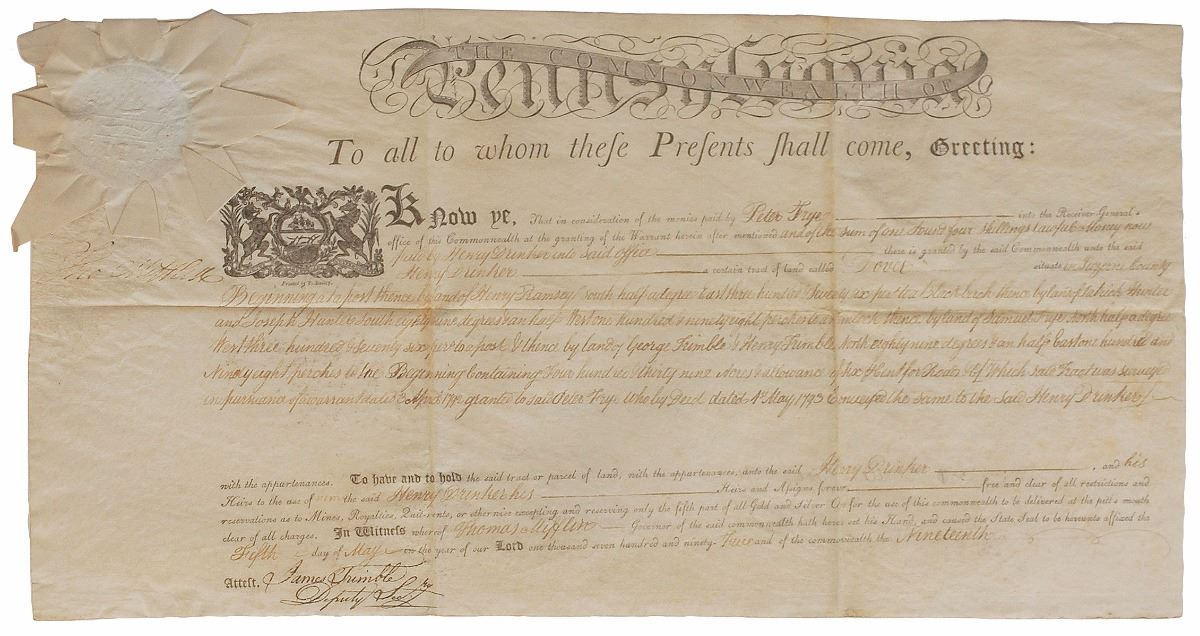 THE COMMONWEALTH OF
Pennsylvania
To all to whom theſe Preſents ſhall come, Greeting:
Know ye, That in conſideration of the monies paid by Peter Frye into the Receiver-General's
office of this Commonwealth at the granting of the Warrant herein after mentioned and of the sum of one Pound four Shillings lawful Money now
paid by Henry Drinker into said Office there is granted by the said Commonwealth unto the said
Henry Drinker a certain tract of land called Dover situate in Luzerne County
Beginning at a post thence by land of Henry Ramsey South half a degree East three hundred & seventy six per. to a black birch thence by land of Patrick Hunter
and Joseph Hunter South eighty nine degrees & an half West one hundred & ninety eight perches to a hemlock thence by land of Samuel Frye North half a degree
West three hundred & seventy six per. to a post & thence by land of George Trimble & Henry Trimble North eighty nine degrees & an half East one hundred and
Ninety eight perches to the Beginning Containing four hundred & thirty nine Acres & allowance of six P Cent for Roads &c. Which said Tract was surveyed
in pursuance of a warrant dated April 1792 granted to said Peter Frye Who by Deed dated May 1793 Conveyed the same to the said Henry Drinker
with the appurtenances. To have and to hold the said tract or parcel of land, with the appurtenances, unto the said Henry Drinker, and his
Heirs to the use of him the said Henry Drinker his Heirs and Aſsigns forever free and clear of all restrictions and
reservations as to Mines, Royalties, Quit-rents, or otherwise excepting and reserving only the fifth part of all Gold and Silver Ore for the use of this commonwealth to be delivered at the pit's mouth
clear of all charges. In Witness whereof Thomas Mifflin Governor of the said commonwealth hath hereto set his Hand, and caused the State Seal to be hereunto affixed the
Fifth day of May in the year of our Lord one thousand seven hundred and ninety-Five and of the commonwealth the Nineteenth
Attest. James Trimble
Deputy Secy